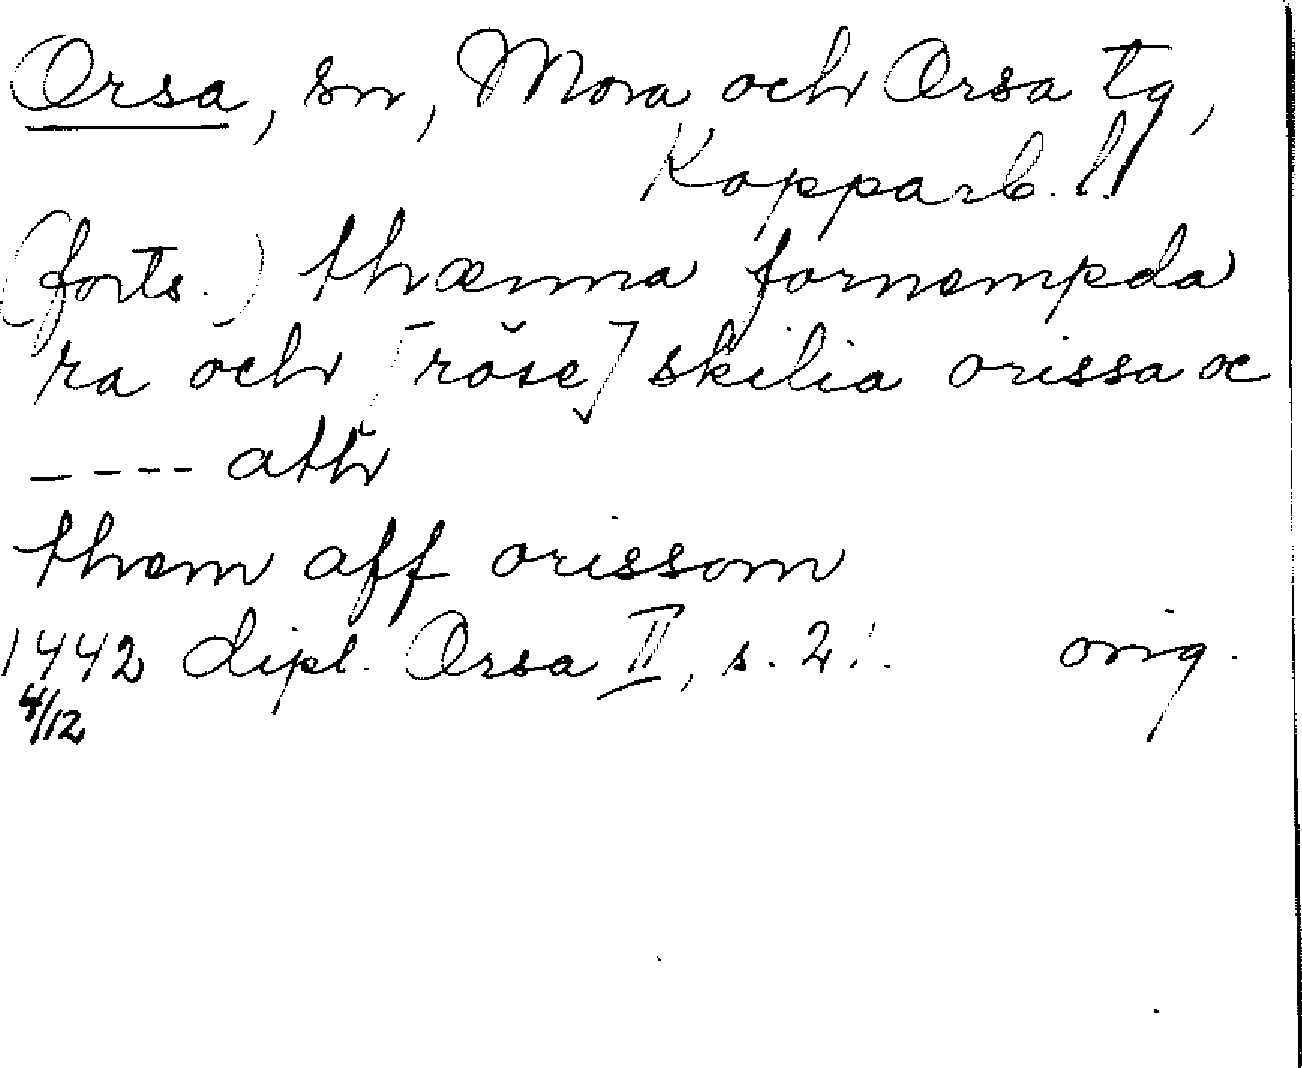 Orsa, sn, Mora och Orsa tg,
Kopparb. l.
(forts.) thænna fornempda
ra och [röse] skilia orissa oc
---- ath
them aff orissom
1442 dipl. Orsa II, s. 2. orig.
4/12